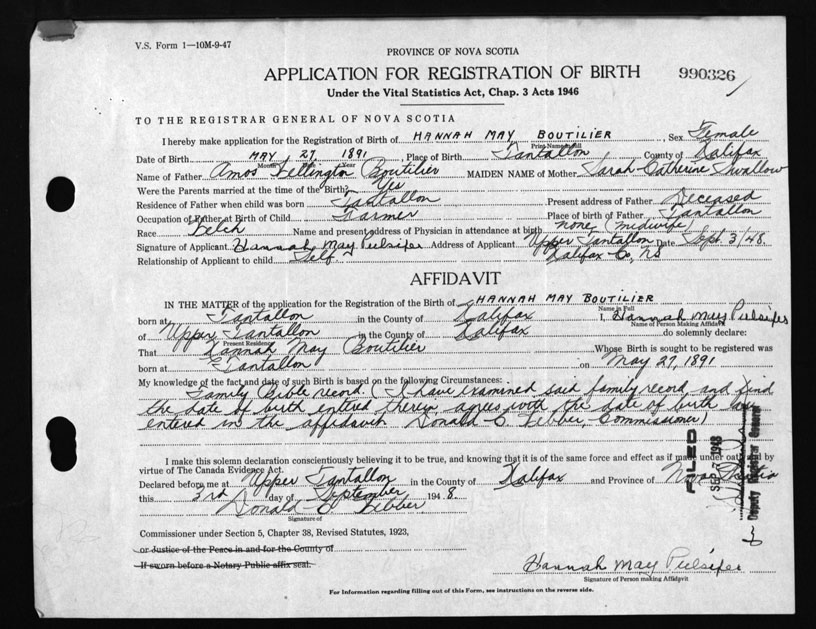 V.S. Form 1—10M-9-47
PROVINCE OF NOVA SCOTIA
APPLICATION FOR REGISTRATION OF BIRTH 990326
Under the Vital Statistics Act, Chap. 3 Acts 1946
TO THE REGISTRAR GENERAL OF NOVA SCOTIA
I hereby make application for the Registration of Birth of HANNAH MAY BOUTILIER Sex Female
Print Name in Full
Date of Birth MAY 27, 1891 Place of Birth Tantallon County of Halifax
Month Day Year
Name of Father Amos Boutilier MAIDEN NAME of Mother Sarah Catherine Swallow
Were the Parents married at the time of the Birth? Yes
Residence of Father when child was born Tantallon Present address of Father Deceased
Occupation of Father at Birth of Child Farmer Place of birth of Father Tantallon
Race Name and present address of Physician in attendance at birth none, (midwife)
Signature of Applicant Hannah May Pulsifer Address of Applicant Upper Tantallon Date Sept. 3/48
Relationship of Applicant to child Self Halifax Co, NS
AFFIDAVIT
IN THE MATTER of the application for the Registration of the Birth of HANNAH MAY BOUTILIER
Name in Full
born at Tantallon in the County of Halifax I, Hannah May Pulsifer
Name of Person Making Affidavit
of Upper Tantallon in the County of Halifax do solemnly declare:
Present Residence
That Hannah May Boutilier Whose Birth is sought to be registered was
born at Tantallon on May 27, 1891
My knowledge of the fact and date of such Birth is based on the following Circumstances:
Family Bible record. (I have examined said family record and find
the date of birth entered therein, agrees with the date of birth
entered in the affidavit. Donald C. Commissioner)
I make this solemn declaration conscientiously believing it to be true, and knowing that it is of the same force and effect as if made under oath and by
virtue of The Canada Evidence Act.
Declared before me at Upper Tantallon in the County of Halifax and Province of Nova Scotia
this 3rd day of September 1948
Donald C.
Signature of
Commissioner under Section 5, Chapter 38, Revised Statutes, 1923,
or Justice of the Peace in and for the County of
If sworn before a Notary Public affix seal.
Hannah May Pulsifer
Signature of Person making Affidavit
For Information regarding filling out of this Form, see instructions on the reverse side.
FILED
SEP 7 1948
Deputy Registrar General